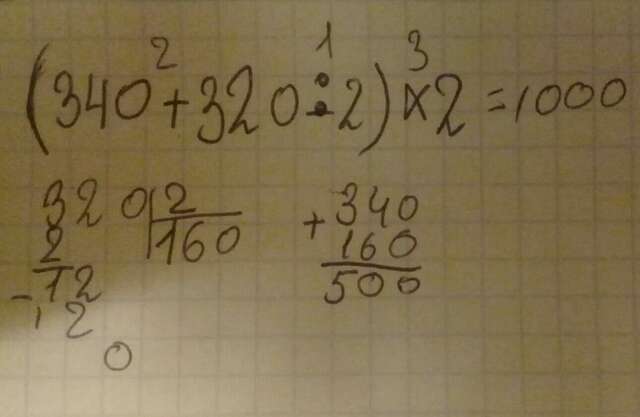 2 1 3
(340+320:2)×2=1000
320 2
2 160
12
-12
0
+340
160
500